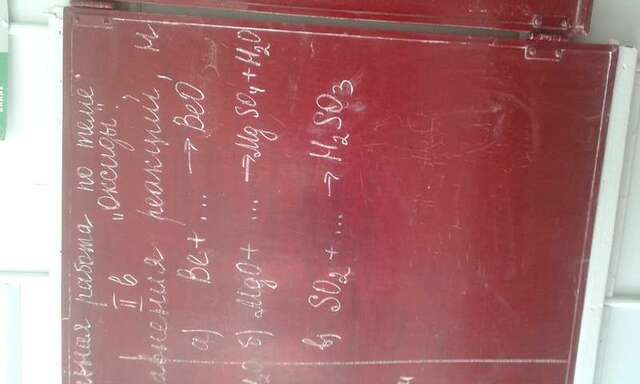 авная работа по теме:
„Оксиды".
II в
авнения реакций, н
а) Be + ... → BeO
H₂O б) MgO + ... → MgSO₄ + H₂O
в) SO₂ + ... → H₂SO₃